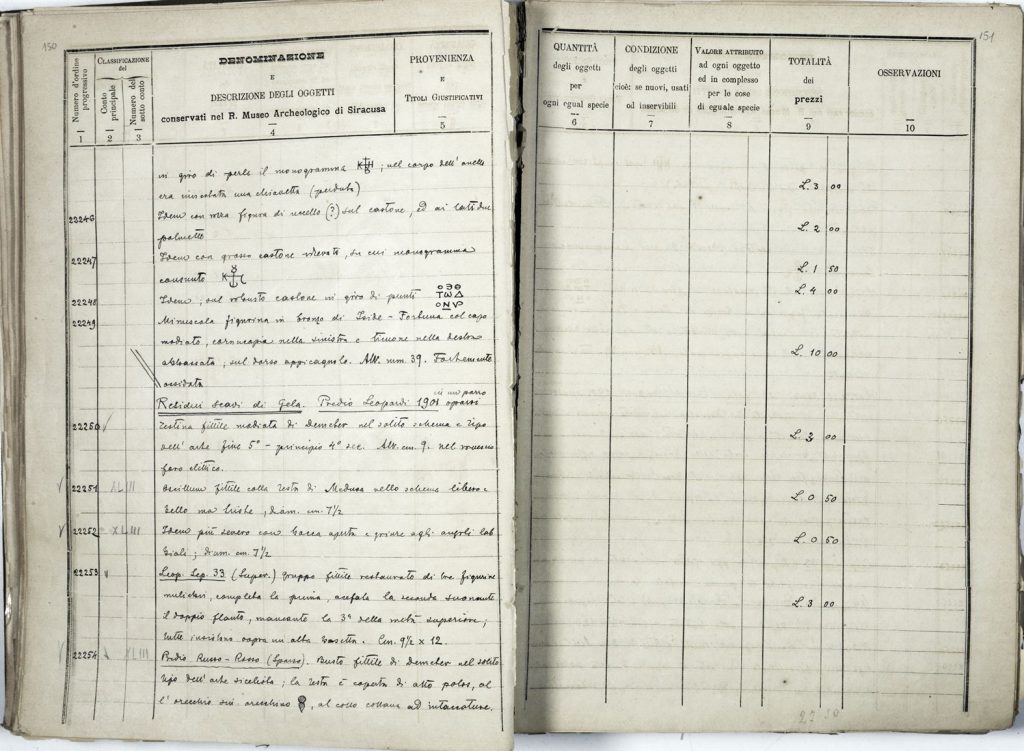 150
Numero d'ordine progressivo
CLASSIFICAZIONE del
Conto principale
Numero del sotto conto
DENOMINAZIONE
E
DESCRIZIONE DEGLI OGGETTI
conservati nel R. Museo Archeologico di Siracusa
PROVENIENZA
E
TITOLI GIUSTIFICATIVI
1 2 3 4 5
in giro di perle il monogramma ; nel corpo dell'anello
era innestata una chiavetta (perduta)
22246 Idem con rozza figura di uccello (?) sul castone, ed ai lati due
palmette
22247 Idem con grosso castone rilevato, su cui monogramma
consunto
22248 Idem, sul robusto castone in giro di punti ΟΘΟ
ΤΩΔ
22249 Minuscola figurina in bronzo di Iside - Fortuna col capo
modiato, cornucopia nella sinistra e timone nella destra
abbassata, sul dorso appicagnolo. Alt. mm. 39. Fortemente
ossidata
Residui scavi di Gela. Predio Leopardi 1901 sparsi
22250 Testina fittile modiata di Demeter nel solito schema e tipo
dell'arte fine 5° - principio 4° sec. Alt. cm. 9. nel rovescio
foro ellittico.
22251 XLIII Oscillum fittile colla testa di Medusa nello schema libero e
bello ma triste, diam. cm. 7½
22252 XLIII Idem più severo con bocca aperta e grinze agli angoli lab
biali; diam. cm. 7½
22253 Leop. Sep. 33 (Super.) Gruppo fittile restaurato di tre figurine
muliebri, completa la prima, acefala la seconda suonante
il doppio flauto, mancante la 3ª della metà superiore;
tutte insistono sopra un'alta basetta. Cm. 9½ x 12.
22254 XLIII Predio Russo-Rosso (Sparso). Busto fittile di Demeter nel solito
tipo dell'arte siceliota; la testa è coperta di alto polos, al
l'orecchio un orecchino , al collo collana ad intaccature.
151
QUANTITÀ
degli oggetti
per
ogni egual specie
CONDIZIONE
degli oggetti
cioè: se nuovi, usati
od inservibili
VALORE ATTRIBUITO
ad ogni oggetto
ed in complesso
per le cose
di eguale specie
TOTALITÀ
dei
prezzi
OSSERVAZIONI
6 7 8 9 10
L. 3 00
L. 2 00
L. 1 50
L. 4 00
L. 10 00
L. 3 00
L. 0 50
L. 0 50
L. 3 00
27 50